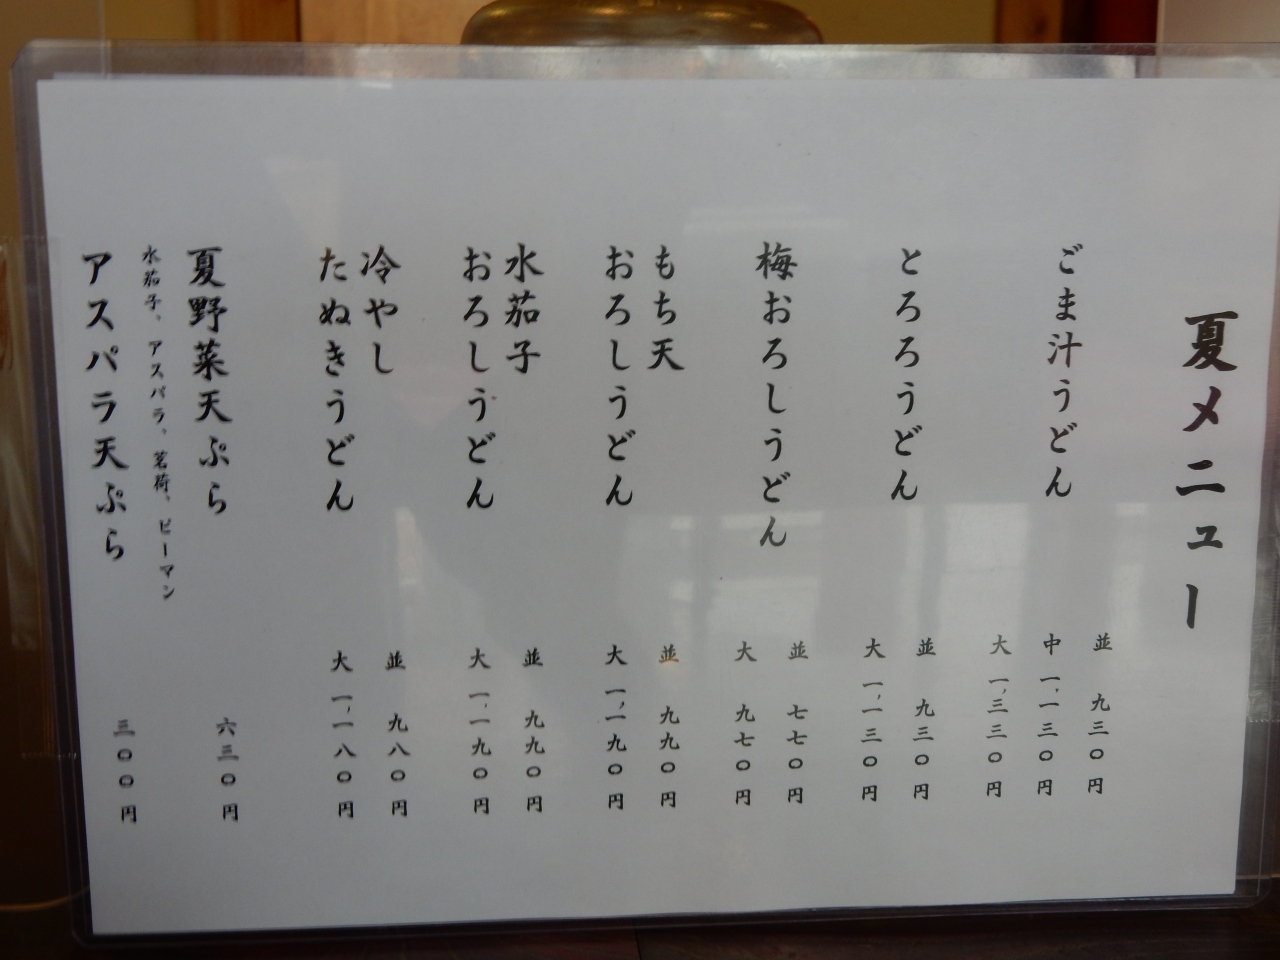 夏メニュー
ごま汁うどん
並 九三〇円
中 一、一三〇円
大 一、三三〇円
とろろうどん
並 九三〇円
大 一、一三〇円
梅おろしうどん
並 七七〇円
大 九七〇円
もち天
おろしうどん
並 九九〇円
大 一、一九〇円
水茄子
おろしうどん
並 九九〇円
大 一、一九〇円
冷やし
たぬきうどん
並 九八〇円
大 一、一八〇円
夏野菜天ぷら
六三〇円
水茄子、アスパラ、茗荷、ピーマン
アスパラ天ぷら
三〇〇円